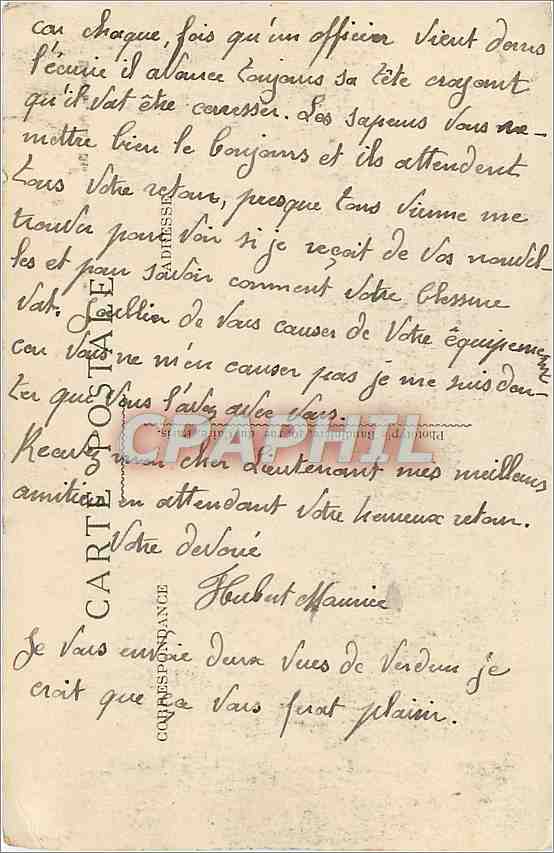 car chaque, fois qu'un officier vient dans
l'écurie il avance toujours sa tête croyant
qu'il vat être caresser. Les sapeurs vous re-
mettre bien le bonjours et ils attendent
tous votre retour, presque tous vienne me
trouver pour voir si je reçoit de vos nouvel-
les et pour savoir comment votre blessure
vat. J'oublier de vous causer de votre équipement
car vous ne m'en causer pas je me suis dou-
ter que vous l'avez avec vous.
Recevez mon cher Lieutenant mes meilleurs
amitiés en attendant votre heureux retour.
Votre devoué
Hubert Maurice
Je vous envoie deux vues de Verdun je
croit que ça vous ferat plaisir.
CARTE POSTALE
CORRESPONDANCE
ADRESSE
CPAPHIL